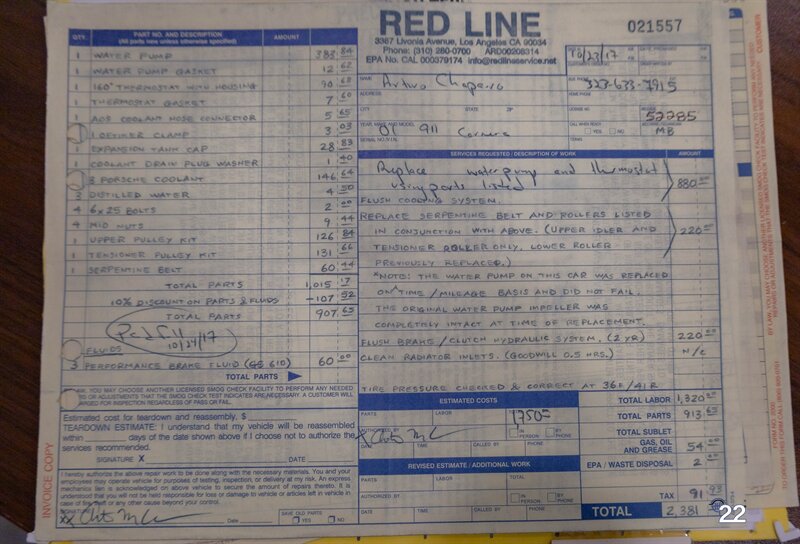 RED LINE
3387 Livonia Avenue, Los Angeles CA 90034
Phone: (310) 280-0700 ARD00208314
EPA No. CAL 000379174 info@redlineservice.net
021557
QTY. PART NO. AND DESCRIPTION AMOUNT
(All parts new unless otherwise specified)
1 WATER PUMP 383 84
1 WATER PUMP GASKET 12 62
1 160° THERMOSTAT WITH HOUSING 90 68
1 THERMOSTAT GASKET 7 60
1 AOS COOLANT HOSE CONNECTOR 5 65
1 OETIKER CLAMP 3 03
1 EXPANSION TANK CAP 28 83
1 COOLANT DRAIN PLUG WASHER 1 40
3 PORSCHE COOLANT 146 64
3 DISTILLED WATER 4 50
4 6x25 BOLTS 2 00
4 M10 NUTS 9 44
1 UPPER PULLEY KIT 126 84
1 TENSIONER PULLEY KIT 131 66
1 SERPENTINE BELT 60 44
TOTAL PARTS 1,015 17
10% DISCOUNT ON PARTS & FLUIDS -107 52
TOTAL PARTS 907 65
Pd full
10/24/17
FLUIDS
3 PERFORMANCE BRAKE FLUID 60 00
TOTAL PARTS
YOU MAY CHOOSE ANOTHER LICENSED SMOG CHECK FACILITY TO PERFORM ANY NEEDED
OR ADJUSTMENTS THAT THE SMOG CHECK TEST INDICATES ARE NECESSARY. A CUSTOMER WILL
FOR INSPECTION REGARDLESS OF PASS OR FAIL.
Estimated cost for teardown and reassembly, $
TEARDOWN ESTIMATE: I understand that my vehicle will be reassembled
within days of the date shown above if I choose not to authorize the
services recommended.
SIGNATURE X DATE
I hereby authorize the above repair work to be done along with the necessary materials. You and your
employees may operate vehicle for purposes of testing, inspection, or delivery at my risk. An express
mechanics lien is acknowledged on above vehicle to secure the amount of repairs thereto. It is
understood that you will not be held responsible for loss or damage to vehicle or articles left in vehicle in
case of fire, theft or any other cause beyond your control.
Date SAVE OLD PARTS
YES NO
INVOICE COPY
10/23/17
NAME Arturo
323-633-7915
ADDRESS
CITY STATE ZIP
52285
YEAR, MAKE AND MODEL 01 911 Carrera
CALL WHEN READY
YES NO
MB
TERMS
SERVICES REQUESTED / DESCRIPTION OF WORK AMOUNT
Replace water pump and thermostat
using parts listed 880 00
FLUSH COOLING SYSTEM.
REPLACE SERPENTINE BELT AND ROLLERS LISTED
IN CONJUNCTION WITH ABOVE. (UPPER IDLER AND 220 00
TENSIONER ROLLER ONLY, LOWER ROLLER
PREVIOUSLY REPLACED.)
*NOTE: THE WATER PUMP ON THIS CAR WAS REPLACED
ON TIME / MILEAGE BASIS AND DID NOT FAIL.
THE ORIGINAL WATER PUMP IMPELLER WAS
COMPLETELY INTACT AT TIME OF REPLACEMENT.
FLUSH BRAKE / CLUTCH HYDRAULIC SYSTEM. (2 YR) 220 00
CLEAN RADIATOR INLETS. (GOODWILL 0.5 HRS.) N/C
TIRE PRESSURE CHECKED & CORRECT AT 36F/41R
ESTIMATED COSTS TOTAL LABOR 1,320 00
PARTS LABOR 1750 00 TOTAL PARTS 913
AUTHORIZED BY IN PERSON BY PHONE TOTAL SUBLET
DATE TIME CALLED BY PHONE GAS, OIL AND GREASE 54 00
REVISED ESTIMATE / ADDITIONAL WORK EPA / WASTE DISPOSAL 2
PARTS LABOR TOTAL
AUTHORIZED BY IN PERSON BY PHONE TAX 91
DATE TIME CALLED BY PHONE TOTAL 2,381
22